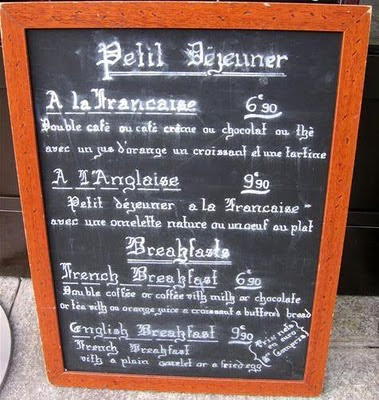 Petit Déjeuner
A la Francaise 6€90
Double café ou café crème ou chocolat ou thé
avec un jus d'orange un croissant et une tartine
A L'Anglaise 9€90
Petit déjeuner a la Francaise
avec une omelette nature ou un oeuf au plat
Breakfasts
French Breakfast 6€90
Double coffee or coffee vith milh or chocolate
or tea vith an orange juice a croissant a buttered bread
English Breakfast 9€90
French Breakfast
vith a plain omelet or a fried egg
Prix nets
en euro